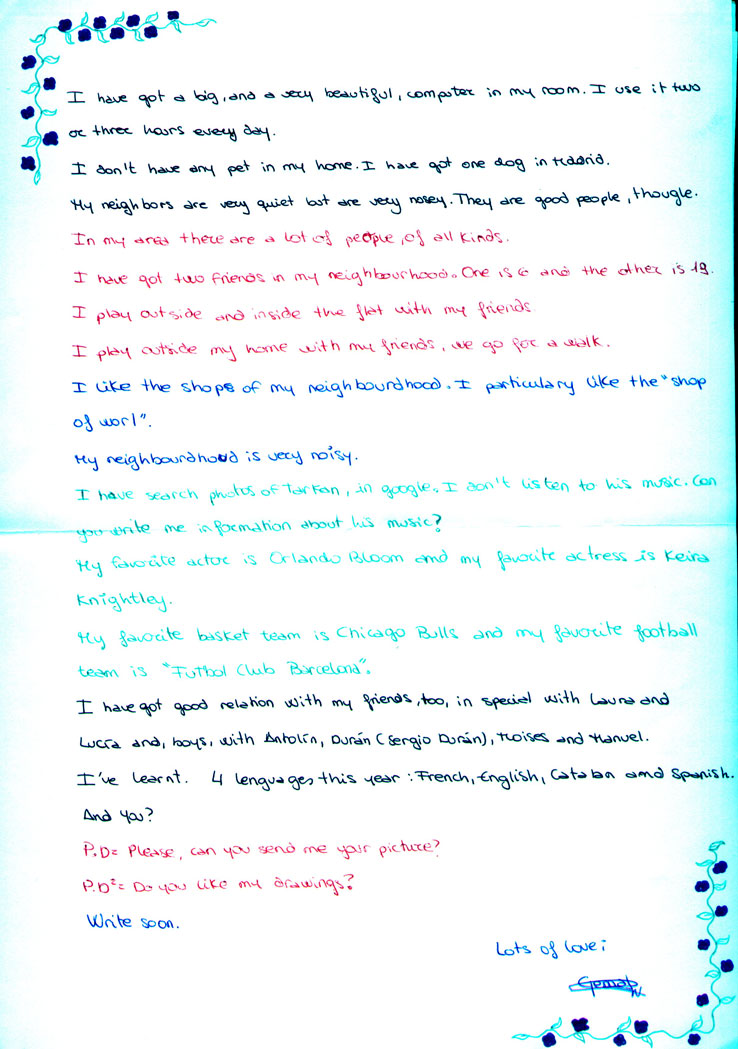 I have got a big, and a very beautiful, computer in my room. I use it two
or three hours every day.
I don't have any pet in my home. I have got one dog in Madrid.
My neighbors are very quiet but are very nosey. They are good people, thougle.
In my area there are a lot of people, of all kinds.
I have got two friends in my neighbourhood. One is 6 and the other is 19.
I play outside and inside the flat with my friends
I play outside my home with my friends, we go for a walk.
I like the shops of my neighbourdhood. I particulary like the "shop
of worl".
My neighbourdhood is very noisy.
I have search photos of Tarkan, in google. I don't listen to his music. Can
you write me information about his music?
My favorite actor is Orlando Bloom and my favorite actress is Keira
Knightley.
My favorite basket team is Chicago Bulls and my favorite football
team is "Futbol Club Barcelona".
I have got good relation with my friends, too, in special with Laura and
Lucía and, boys, with Antolín, Durán (Sergio Durán), Moises and Manuel.
I've learnt. 4 lenguages this year: French, English, Catalan and Spanish.
And you?
P.D= Please, can you send me your picture?
P.D²= Do you like my drawings?
Write soon.
Lots of love:
Gema